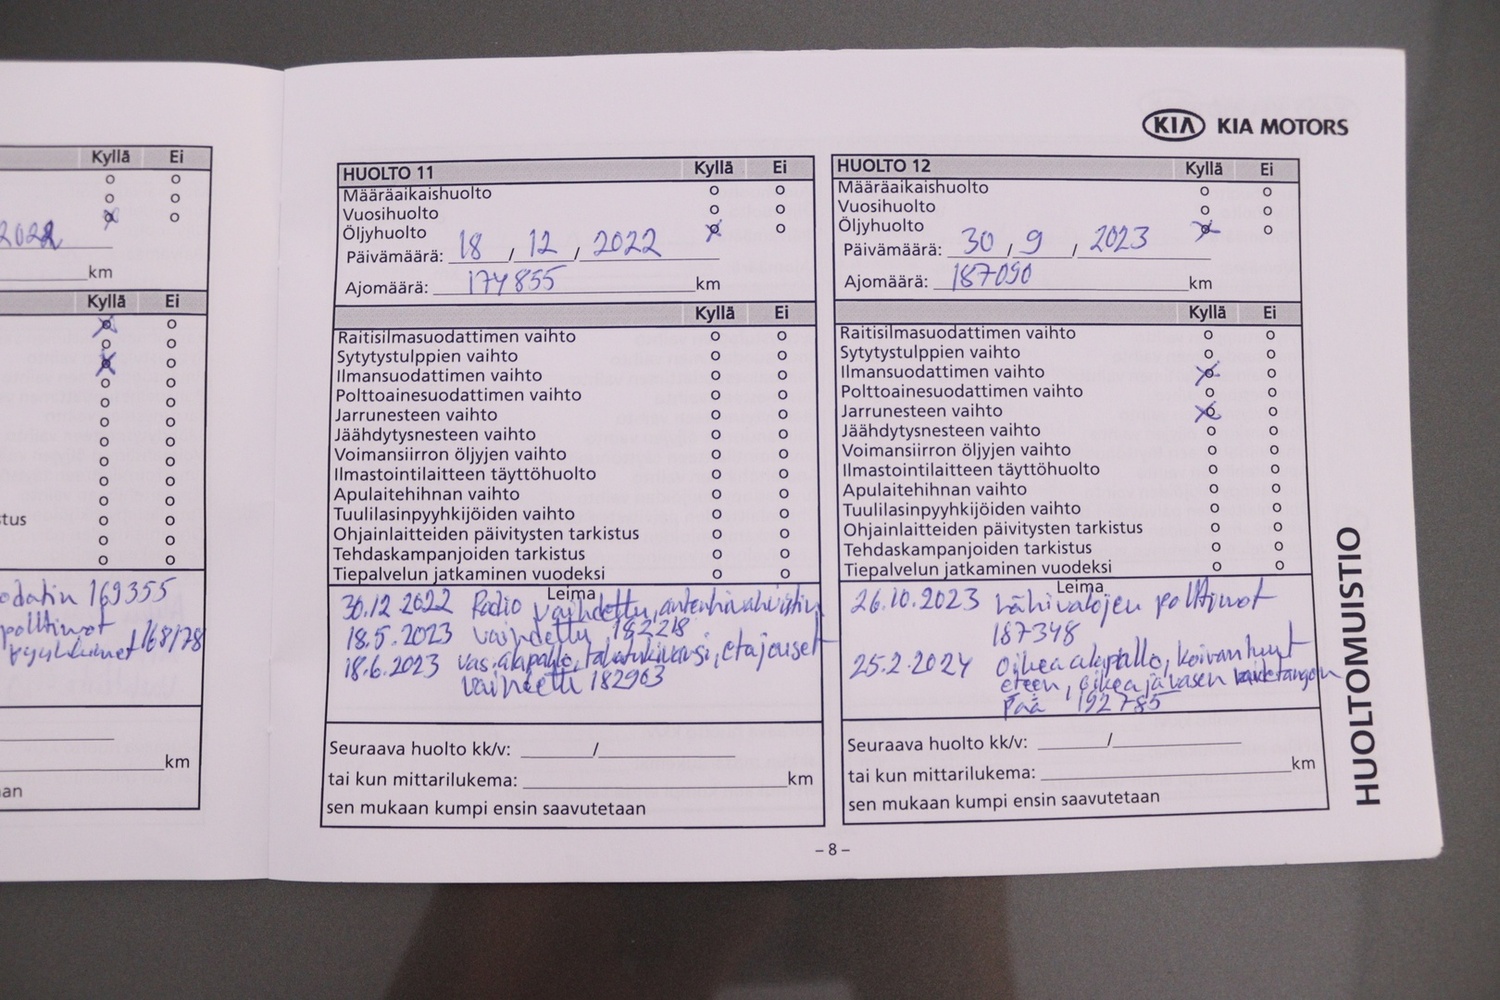 Kyllä Ei
2022
km
Kyllä Ei
stus
odatin 169355
polttimot
168178
km
an
KIA KIA MOTORS
HUOLTO 11 Kyllä Ei
Määräaikaishuolto
Vuosihuolto
Öljyhuolto
Päivämäärä: 18 / 12 / 2022
Ajomäärä: 174855 km
Kyllä Ei
Raitisilmasuodattimen vaihto
Sytytystulppien vaihto
Ilmansuodattimen vaihto
Polttoainesuodattimen vaihto
Jarrunesteen vaihto
Jäähdytysnesteen vaihto
Voimansiirron öljyjen vaihto
Ilmastointilaitteen täyttöhuolto
Apulaitehihnan vaihto
Tuulilasinpyyhkijöiden vaihto
Ohjainlaitteiden päivitysten tarkistus
Tehdaskampanjoiden tarkistus
Tiepalvelun jatkaminen vuodeksi
Leima
30.12.2022 Radio vaihdettu, antennivahvistin
18.5.2023 vaihdettu 182218
18.6.2023 vas. alapallo, tukivarsi, etujouset
vaihdettu 182903
Seuraava huolto kk/v: /
tai kun mittarilukema: km
sen mukaan kumpi ensin saavutetaan
HUOLTO 12 Kyllä Ei
Määräaikaishuolto
Vuosihuolto
Öljyhuolto
Päivämäärä: 30 / 9 / 2023
Ajomäärä: 187090 km
Kyllä Ei
Raitisilmasuodattimen vaihto
Sytytystulppien vaihto
Ilmansuodattimen vaihto
Polttoainesuodattimen vaihto
Jarrunesteen vaihto
Jäähdytysnesteen vaihto
Voimansiirron öljyjen vaihto
Ilmastointilaitteen täyttöhuolto
Apulaitehihnan vaihto
Tuulilasinpyyhkijöiden vaihto
Ohjainlaitteiden päivitysten tarkistus
Tehdaskampanjoiden tarkistus
Tiepalvelun jatkaminen vuodeksi
Leima
26.10.2023 Lähivalojen polttimot
187348
25.2.2024 Oikea alapallo, koiranluut
eteen, oikea ja vasen raidetangon
pää 192785
Seuraava huolto kk/v: /
tai kun mittarilukema: km
sen mukaan kumpi ensin saavutetaan
HUOLTOMUISTIO
– 8 –